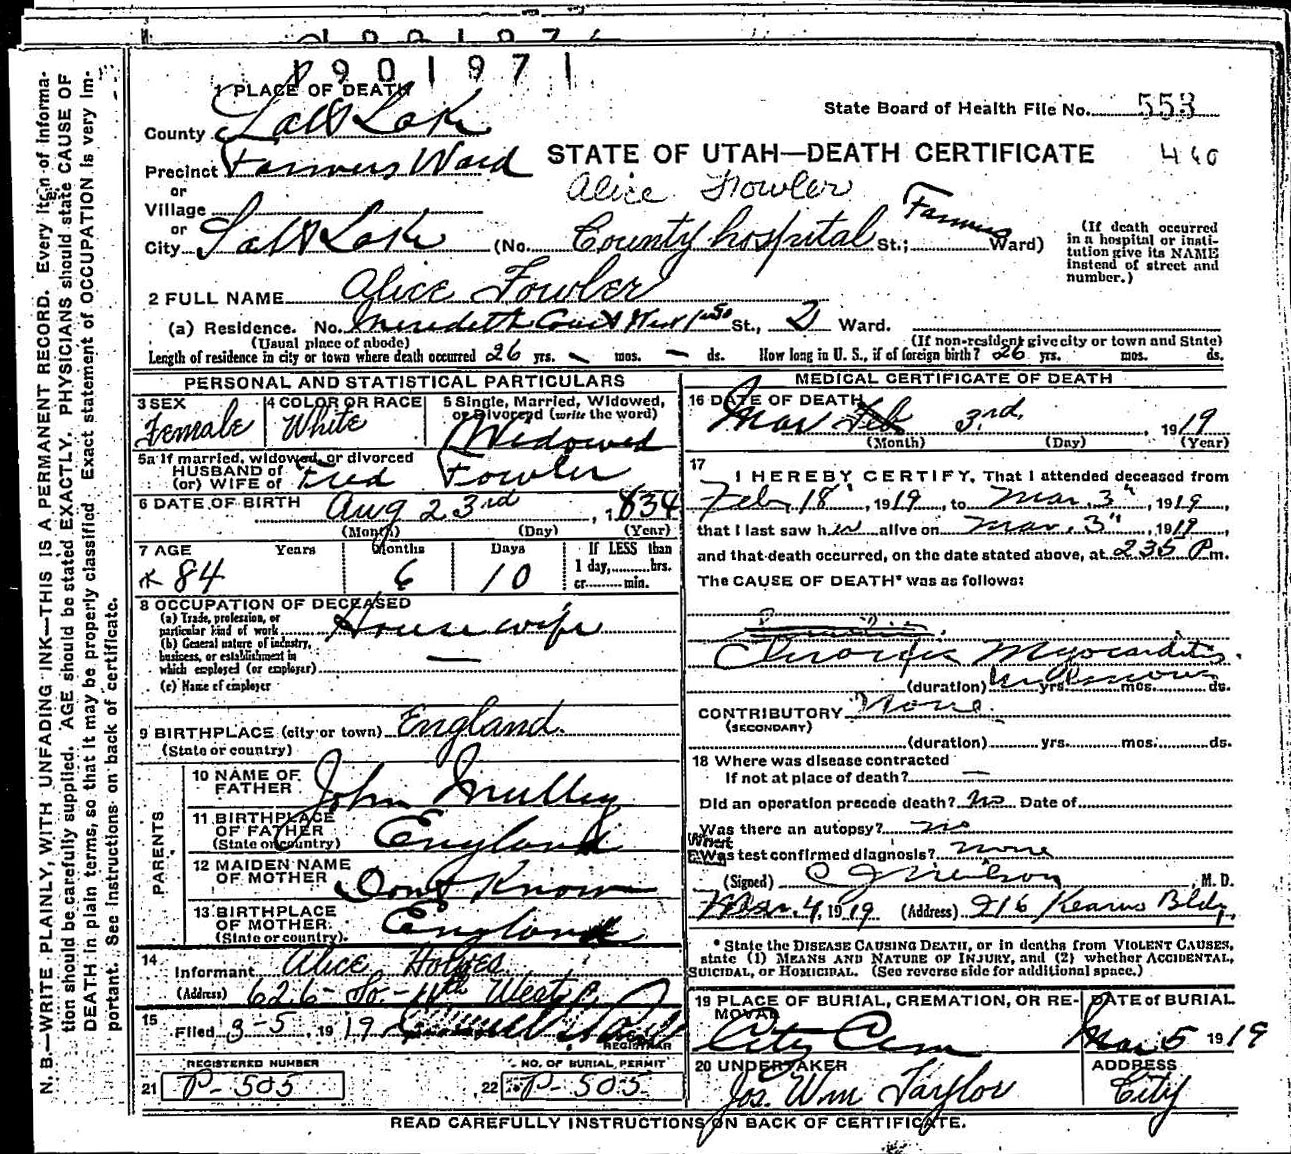 1901971
1 PLACE OF DEATH
State Board of Health File No. 553
County Salt Lake
Precinct Farmers Ward
STATE OF UTAH—DEATH CERTIFICATE 460
or
Alice Fowler
Village
or
City Salt Lake (No. County hospital St.; Farmers Ward)
(If death occurred in a hospital or insti-
tution give its NAME
instead of street and
number.)
2 FULL NAME Alice Fowler
(a) Residence. No. Meredith Court West 1st So St., 2 Ward.
(Usual place of abode) (If non-resident give city or town and State)
Length of residence in city or town where death occurred 26 yrs. - mos. - ds. How long in U. S., if of foreign birth? 26 yrs. mos. ds.
PERSONAL AND STATISTICAL PARTICULARS
3 SEX
Female
4 COLOR OR RACE
White
5 Single, Married, Widowed,
or Divorced (write the word)
Widowed
5a If married, widowed, or divorced
HUSBAND of
(or) WIFE of Fred Fowler
6 DATE OF BIRTH Aug 23rd, 1834
(Month) (Day) (Year)
7 AGE Years Months Days If LESS than
1 day,......hrs.
or......min.
84 6 10
8 OCCUPATION OF DECEASED
(a) Trade, profession, or
particular kind of work Housewife
(b) General nature of industry,
business, or establishment in
which employed (or employer) —
(c) Name of employer
9 BIRTHPLACE (city or town) England.
(State or country)
PARENTS
10 NAME OF
FATHER John Mulley
11 BIRTHPLACE
OF FATHER England
(State or country)
12 MAIDEN NAME
OF MOTHER Dont Know
13 BIRTHPLACE
OF MOTHER England
(State or country).
14
Informant Alice Holmes
(Address) 626 - So. - 11th West
15
Filed 3-5, 1919
REGISTRAR
REGISTERED NUMBER
21 P-505
NO. OF BURIAL PERMIT
22 P-505
MEDICAL CERTIFICATE OF DEATH
16 DATE OF DEATH
Mar Feb 3rd, 1919
(Month) (Day) (Year)
17
I HEREBY CERTIFY, That I attended deceased from
Feb, 18, 1919, to Mar. 3", 1919,
that I last saw her alive on Mar. 3", 1919,
and that death occurred, on the date stated above, at 235 P m.
The CAUSE OF DEATH* was as follows:
Chronic Myocarditis.
(duration) Unknown yrs. mos. ds.
CONTRIBUTORY None.
(SECONDARY)
(duration) yrs. mos. ds.
18 Where was disease contracted
If not at place of death? —
Did an operation precede death? No Date of
Was there an autopsy? no
What test confirmed diagnosis? none
(Signed) C J Neilson M. D.
Mar. 4, 1919 (Address) 916 Kearns Bldg.
* State the DISEASE CAUSING DEATH, or in deaths from VIOLENT CAUSES,
state (1) MEANS AND NATURE OF INJURY, and (2) whether ACCIDENTAL,
SUICIDAL, or HOMICIDAL. (See reverse side for additional space.)
19 PLACE OF BURIAL, CREMATION, OR RE-
MOVAL
City Cem
DATE of BURIAL
Mar 5 1919
20 UNDERTAKER
Jos. Wm Taylor
ADDRESS
City
READ CAREFULLY INSTRUCTIONS ON BACK OF CERTIFICATE.
N. B.—WRITE PLAINLY, WITH UNFADING INK—THIS IS A PERMANENT RECORD. Every item of informa-
tion should be carefully supplied. AGE should be stated EXACTLY. PHYSICIANS should state CAUSE OF
DEATH in plain terms, so that it may be properly classified. Exact statement of OCCUPATION is very im-
portant. See instructions on back of certificate.